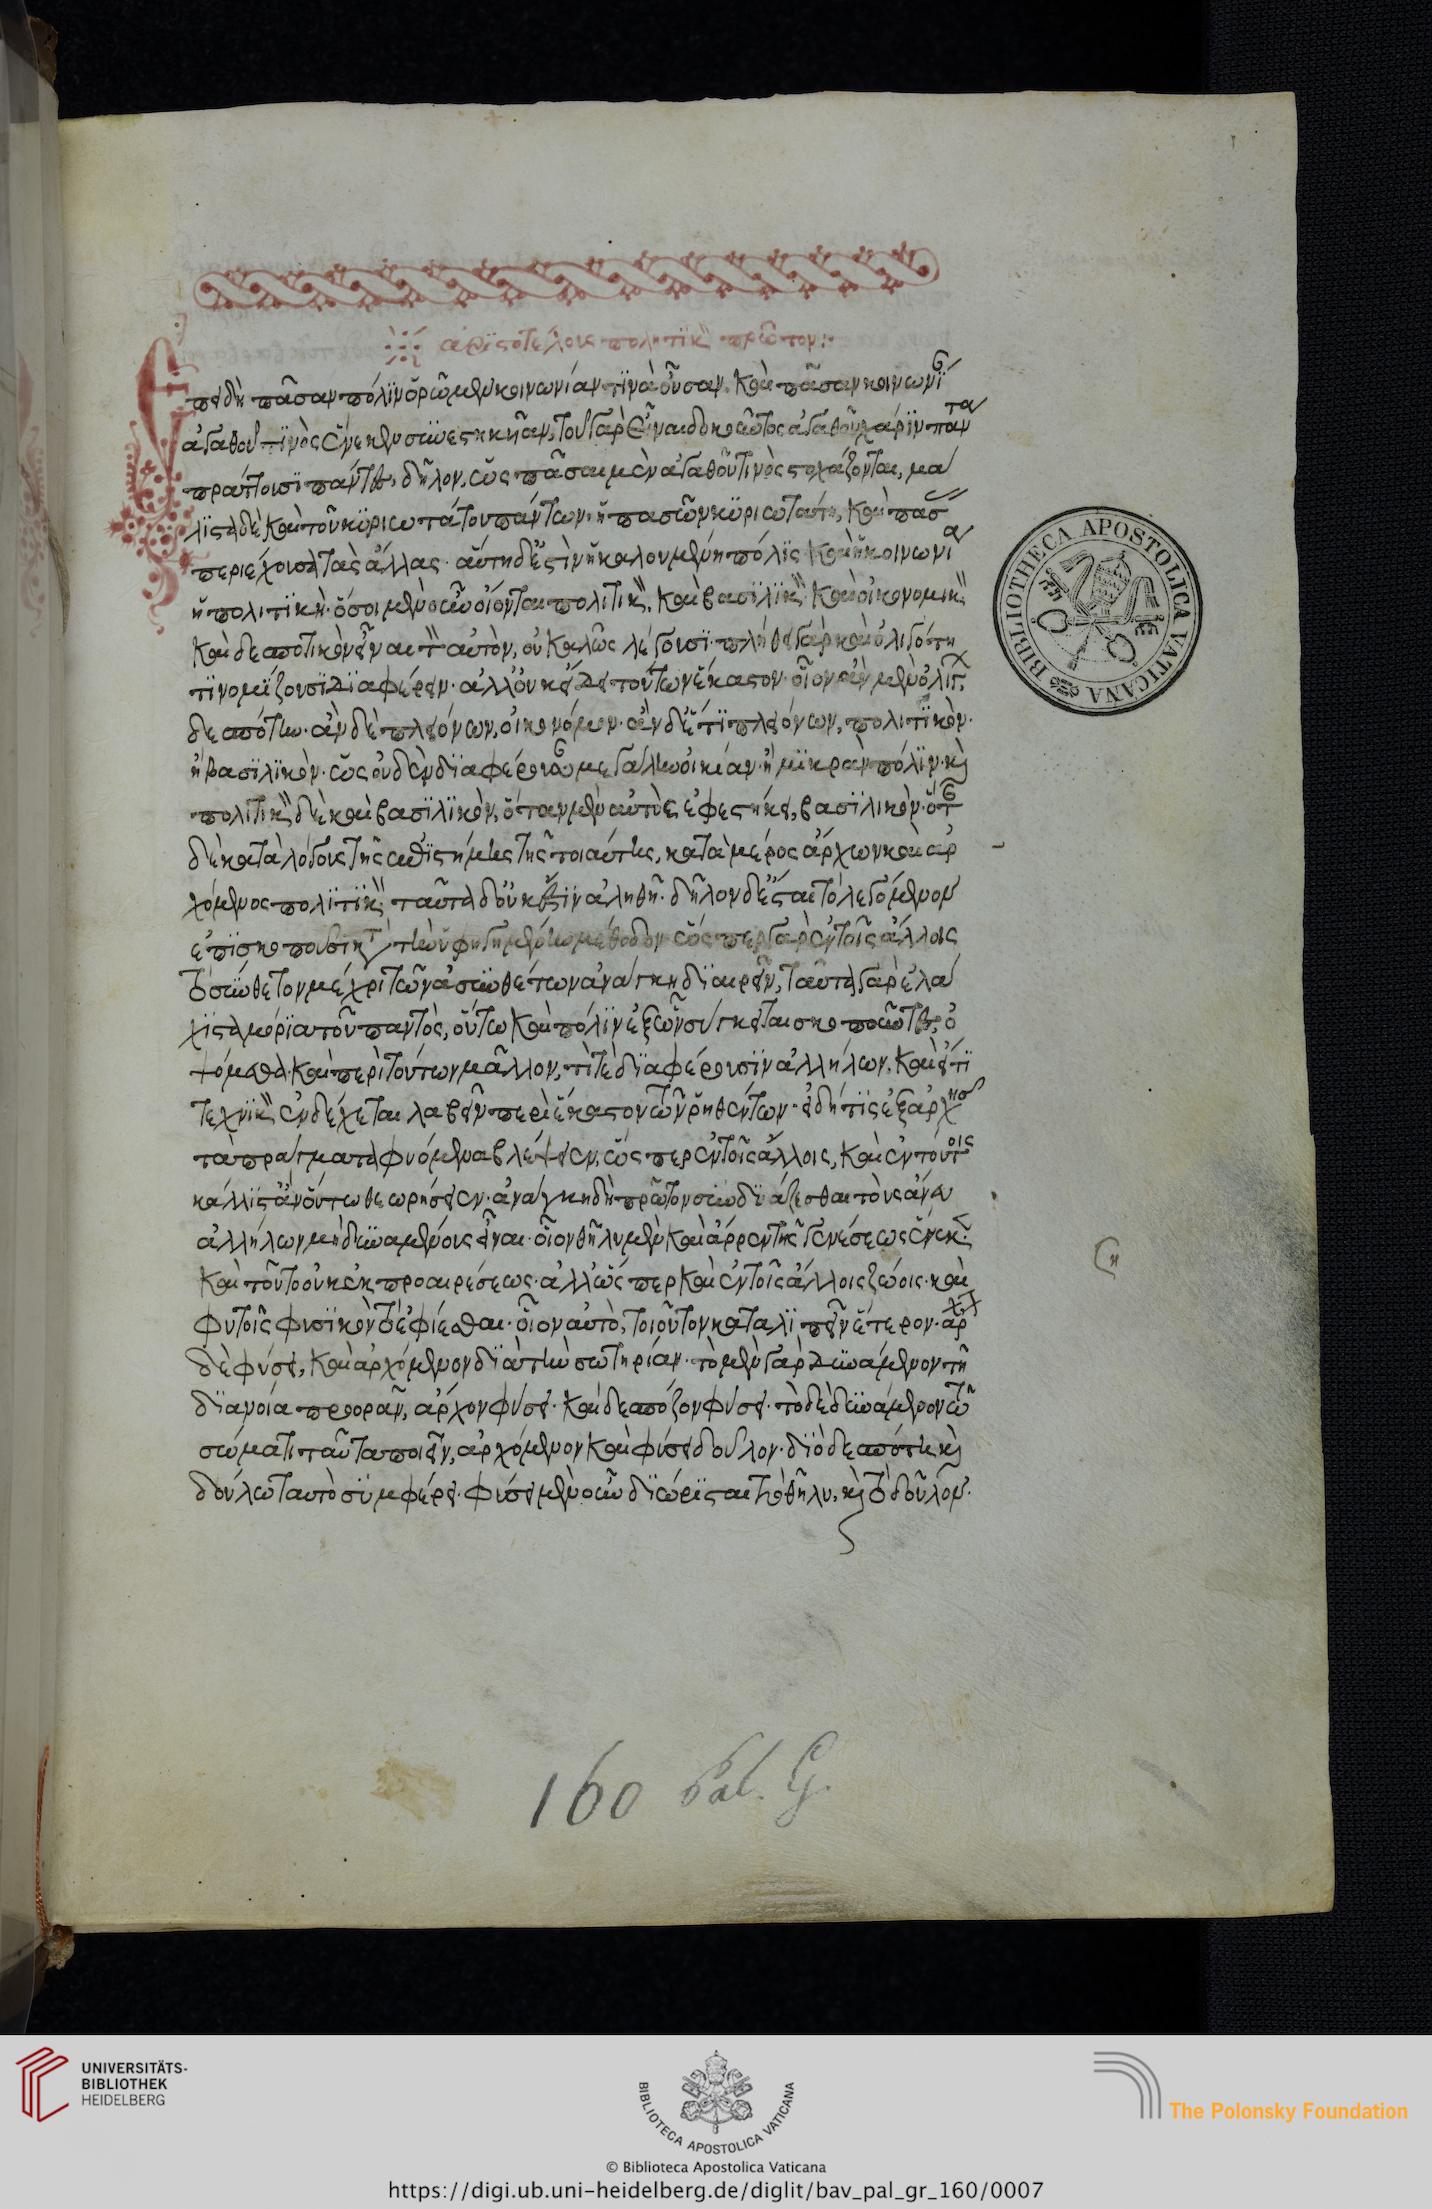 ἀριστοτέλους πολιτικῶν πρῶτον:
Επειδὴ πᾶσαν πόλιν ὁρῶμεν κοινωνίαν τινὰ οὖσαν. καὶ πᾶσαν κοινωνί
ἀγαθοῦ τινὸς ἕνεκεν συνεστηκυῖαν, τοῦ γὰρ εἶναι δοκοῦντος ἀγαθοῦ χάριν παντα
πράττουσι πάντες, δῆλον, ὡς πᾶσαι μὲν ἀγαθοῦ τινὸς στοχάζονται, μά
λιστα δὲ καὶ τοῦ κυριωτάτου πάντων, ἡ πασῶν κυριωτάτη, καὶ πάσ
περιέχουσα τὰς ἄλλας. αὕτη δ' ἐστὶν ἡ καλουμένη πόλις καὶ ἡ κοινωνία
ἡ πολιτική. ὅσοι μὲν οὖν οἴονται πολιτικ, καὶ βασιλικ καὶ οἰκονομικ
καὶ δεσποτικὸν εἶναι τ αὐτὸν, οὐ καλῶς λέγουσι. πλήθει γὰρ καὶ ὀλιγότητι
νομίζουσι διαφέρειν. ἀλλ' οὐκ εἴδει τούτων ἕκαστον. οἷον ἂν μὲν ὀλίγ
δεσπότην. ἂν δὲ πλειόνων, οἰκονόμον. ἂν δ' ἔτι πλειόνων, πολιτικὸν.
ἢ βασιλικὸν. ὡς οὐδὲν διαφέρουσαν μεγάλην οἰκίαν. ἢ μικρὰν πόλιν. καὶ
πολιτικ δὲ καὶ βασιλικὸν, ὅταν μὲν αὐτὸς ἐφεστήκει, βασιλικὸν. ὅτ
δὲ κατὰ λόγους τῆς ἐπιστήμης τῆς τοιαύτης, κατὰ μέρος ἄρχων καὶ ἀρ
χόμενος πολιτικ. ταῦτα δ' οὐκ ἔστιν ἀληθῆ. δῆλον δ' ἔσται τὸ λεγόμενον
ἐπισκοποῦσι κατὰ τὴν ὑφηγημένην μέθοδον ὥσπερ γὰρ ἐν τοῖς ἄλλοις
τὸ σύνθετον μέχρι τῶν ἀσυνθέτων ἀνάγκη διαιρεῖν, ταῦτα γὰρ ἐλά
χιστα μόρια τοῦ παντὸς, οὕτω καὶ πόλιν ἐξ ὧν σύγκειται σκοποῦντες, ὀ
ψόμεθα καὶ περὶ τούτων μᾶλλον, τί τὲ διαφέρουσιν ἀλλήλων. καὶ εἴ τι
τεχνικ ἐνδέχεται λαβεῖν περὶ ἕκαστον τῶν ῥηθέντων. εἰ δή τις ἐξ ἀρχησ
τὰ πράγματα φυόμενα βλέψειεν, ὥσπερ ἐν τοῖς ἄλλοις, καὶ ἐν τούτοις
κάλλιστ' ἂν οὕτω θεωρήσειεν. ἀνάγκη δὴ πρῶτον συνδυάζεσθαι τοὺς ἄνευ
ἀλλήλων μὴ δυναμένους εἶναι. οἷον θῆλυ μὲν καὶ ἄρρεν τῆς γενέσεως ἕνεκ.
καὶ τοῦτο οὐκ ἐκ προαιρέσεως. ἀλλ' ὥσπερ καὶ ἐν τοῖς ἄλλοις ζώοις. καὶ
φυτοῖς φυσικὸν τὸ ἐφίεσθαι. οἷον αὐτὸ, τοιοῦτον καταλιπεῖν ἕτερον. ἄρχον
δὲ φύσει, καὶ ἀρχόμενον διὰ τὴν σωτηρίαν. τὸ μὲν γὰρ δυνάμενον τῇ
διανοία προορᾶν, ἄρχον φύσει. καὶ δεσπόζον φύσει. τὸ δὲ δυνάμενον τῶ
σώματι ταῦτα ποιεῖν, ἀρχόμενον καὶ φύσει δοῦλον. διὸ δεσπότη καὶ
δούλω ταυτὸ συμφέρει. φύσει μὲν οὖν διώρισται τὸ θῆλυ, καὶ τὸ δοῦλον.
160 Pal. G.
BIBLIOTHECA APOSTOLICA VATICANA
UNIVERSITÄTS-
BIBLIOTHEK
HEIDELBERG
BIBLIOTECA APOSTOLICA VATICANA
© Biblioteca Apostolica Vaticana
The Polonsky Foundation
https://digi.ub.uni-heidelberg.de/diglit/bav_pal_gr_160/0007